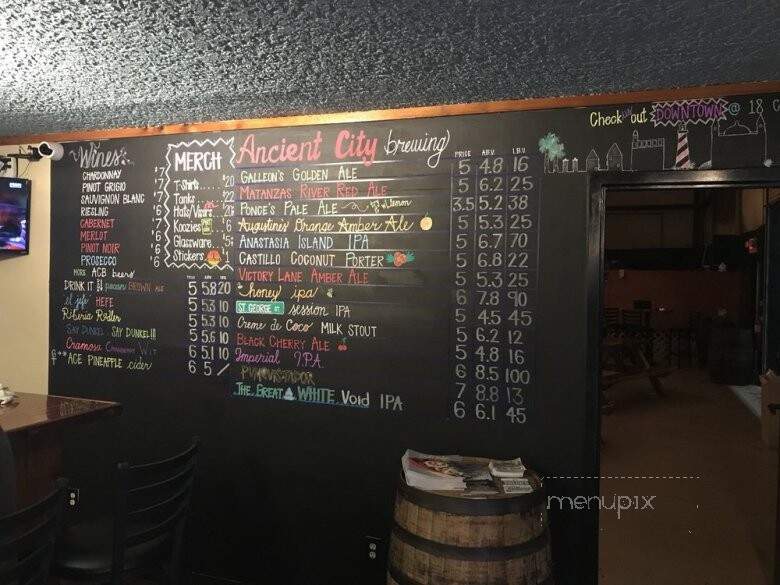 Wines
CHARDONNAY 7
PINOT GRIGIO 7
SAUVIGNON BLANC 7
RIESLING 6
CABERNET 6
MERLOT 6
PINOT NOIR 6
PROSECCO 6
MORE ACB beers
DRINK IT pecan BROWN ALE 5 5.8 20
el jefe HEFE 5 5.3 10
Riberia Roller 5 5.3 10
SAY DUNKEL SAY DUNKEL!!! 5 5.5 10
Cramosa CRANBERRY WIT 6 5.1 10
GF ** ACE PINEAPPLE cider 6 5 /
MERCH
T-Shirts 20
Tanks
Hats/Visors
Koozies
Glassware
Stickers 1
Ancient City brewing
PRICE A.B.V. I.B.U.
GALLEON'S GOLDEN ALE 5 4.8 16
MATANZAS RIVER RED ALE 5 6.2 25
PONCE'S PALE ALE w/ lemon 3.5 5.2 38
Augustine's Orange Amber Ale 5 5.3 25
ANASTASIA ISLAND IPA 5 6.7 70
CASTILLO COCONUT PORTER 5 6.8 22
VICTORY LANE AMBER ALE 5 5.3 25
honey ipa 6 7.8 90
ST. GEORGE ST. SESSION IPA 5 4.5 45
Creme de Coco MILK STOUT 5 6.2 12
BLACK CHERRY ALE 5 4.8 16
Imperial IPA 6 8.5 100
7 8.8 13
THE GREAT WHITE Void IPA 6 6.1 45
Check us out DOWNTOWN @ 18 C
menupix